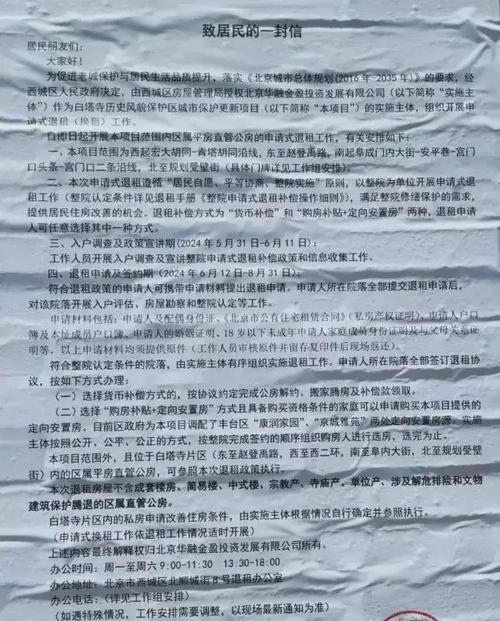 致居民的一封信
居民朋友们：
大家好！
为促进老城保护与居民生活品质提升，落实《北京城市总体规划(2016年-2035年)》的要求，经
西城区人民政府决定，由西城区房屋管理局授权北京华融金盈投资发展有限公司（以下简称“实施主
体”）作为白塔寺历史风貌保护区城市保护更新项目（以下简称“本项目”）的实施主体，组织开展申
请式退租（换租）工作。
自即日起开展本项目范围内区属平房直管公房的申请式退租工作，有关安排如下：
一、本项目范围为西起宏大胡同-青塔胡同沿线，东至赵登禹路，南起阜成门内大街-安平巷-宫门
口头条-宫门口二条沿线，北至规划受壁街（具体门牌详见工作组安排）。
二、本次申请式退租遵循“居民自愿、平等协商、整院实施”原则，以整院为单位开展申请式退
租工作（整院认定条件详见退租手册《整院申请式退租补偿操作细则》），满足整院修缮保护的需求，
提供居民住房改善的机会。退租补偿方式为“货币补偿”和“购房补贴+定向安置房”两种，退租申请
人可任意选择其中一种方式。
三、入户调查及政策宣讲期(2024年5月31日-6月11日)：
工作人员开展入户调查及宣讲整院申请式退租补偿政策和信息收集工作。
四、退租申请及签约期(2024年6月12日-8月31日)：
符合退租政策的申请人可携带申请材料提出退租申请。申请人所在院落全部提交退租申请后，
对该院落开展入户评估、房屋勘察和整院认定等工作。
申请材料包括：申请人及配偶身份证、《北京市公有住宅租赁合同》（《私房产权证明》）、申请人户口
簿及本址成员户口簿、申请人的婚姻证明、18岁以下未成年申请人家庭成员身份证明及与父母关系证
明等，以上申请材料均须提供原件（工作人员审核原件并留存复印件后现场返还）。
符合整院认定条件的院落，由实施主体有序组织实施退租工作。申请人所在院落全部签订退租协
议，按如下方式办理：
（一）选择货币补偿方式的，按协议约定完成公房解约、搬家腾房及补偿款领取。
（二）选择“购房补贴+定向安置房”方式且具备购买资格条件的家庭可以申请购买本项目提供的
定向安置房。目前区政府为本项目调配了丰台区“康润家园”、“京城雅苑”两处定向安置房源。实施
主体按照公开、公平、公正的方式，按整院完成签约的顺序组织购房人进行选房，选完为止。
本项目范围外，且位于白塔寺片区（东至赵登禹路，西至西二环，南至阜内大街，北至规划受壁
街）内的区属平房直管公房，可参照本次退租政策执行。
本次退租房屋不含成套楼房、简易楼、中式楼、宗教产、寺庙产、单位产、涉及解危排险和文物
建筑保护腾退的区属直管公房。
白塔寺片区内的私房申请改善住房条件，由实施主体根据情况自行确定并参照执行。
（申请式换租工作依退租工作情况适时开展）
上述内容最终解释权归北京华融金盈投资发展有限公司所有。
办公时间：周一至周六 9:00-11:30 13:30-18:00
办公地址：北京市西城区北顺城街8号退租办公室
办公电话：（详见工作组安排）
（如遇特殊情况，工作安排需要调整，以现场最新通知为准）